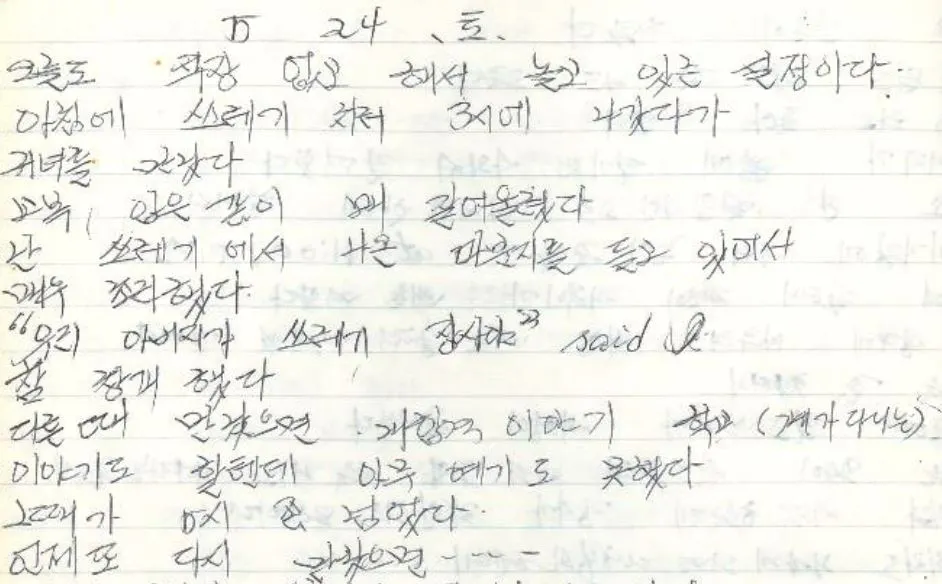 24 . 토.
오늘도 직장 없고 해서 놀고 있는 실정이다.
아침에 쓰레기 치러 3시에 나갔다가
귀녀를 만났다
교복 입은 같이
난 쓰레기에서 나온 마분지를 들고 있어서
매우 초라했다.
"우리 아버지가 쓰레기 장사야" said
참 창피 했다
다른 때 만났으면 개항적 이야기 학교 (걔가 다니는)
이야기도 할텐데 아무 얘기도 못했다
그때가 5시 좀 넘었다.
언제 또 다시 만났으면 - - - -